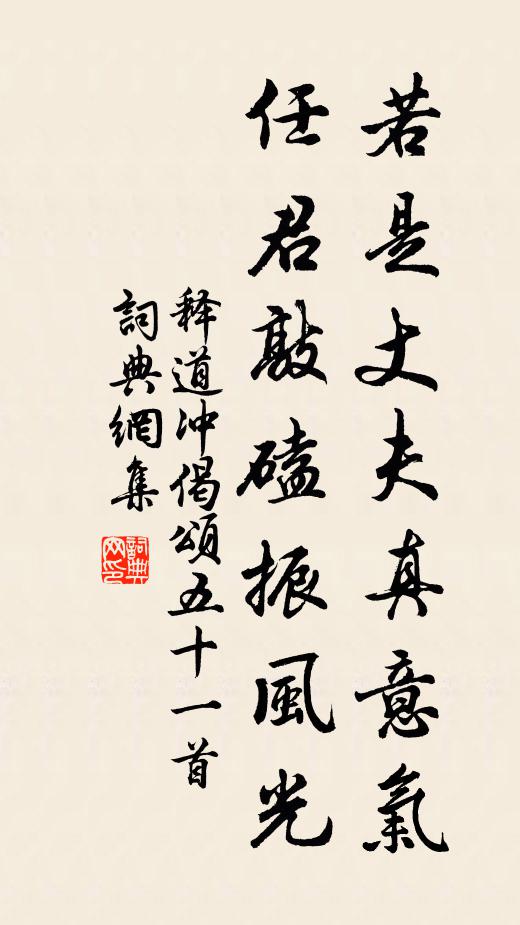 若是丈夫真意氣
任君敲磕振風光
释道冲偈頌五十一首
詞典網集
詞典网印